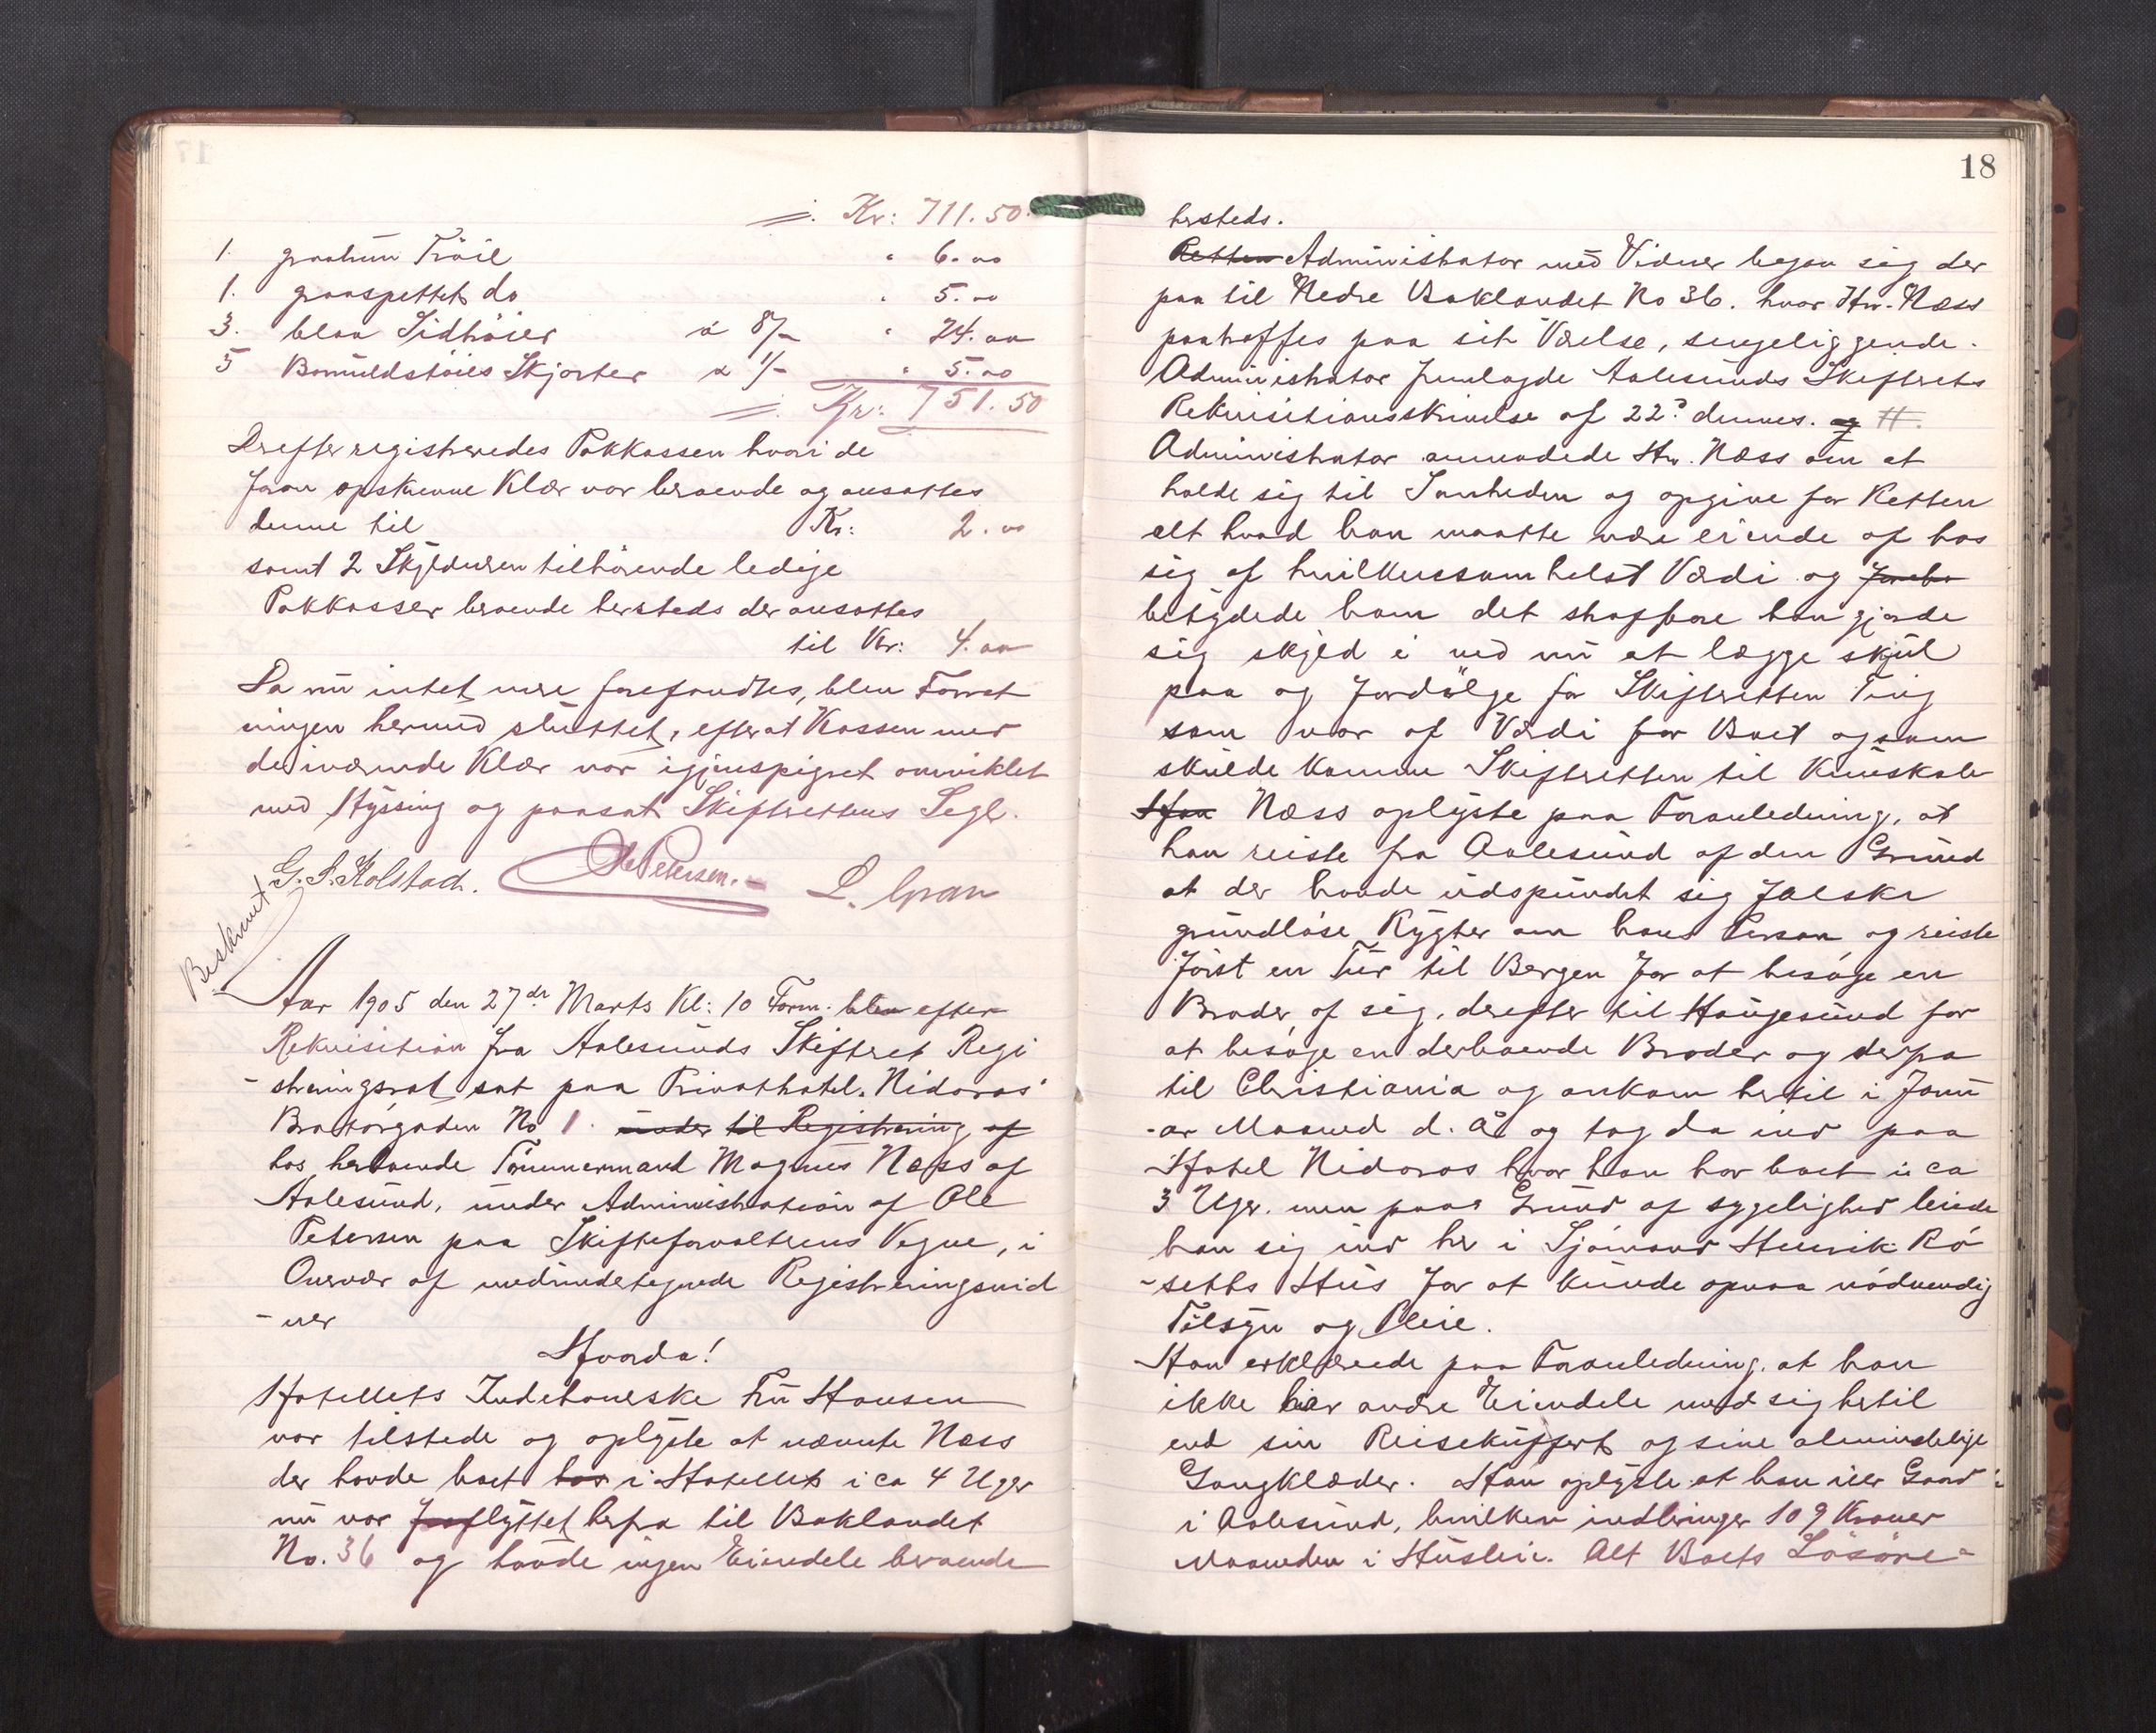 ÷. Kr: 711.50.
1. graabrun Tröie " 6.00
1. graaspettet do " 5.00
3. blaa Sidtröier a 8/- " 24.00
5 Bomuldstöies Skjorter a 1/- " 5.00
÷. Kr: 751.50
Derefter registreredes Pakkassen hvori de
foran opskrevne Klær var beroende og ansattes
denne til Kr: 2.00
samt 2 Skyldneren tilhörende ledige
Pakkasser beroende hersteds der ansattes
til Kr: 4.00
Da nu intet mere forefandtes, blev Forret
ningen hermed sluttet, efterat Kassen med
de iværende Klær var igjenspigret omviklet
med Hyssing og paasat Skifterettens Segl.
G. S. Kolstad. Ole Petersen. L. Gran
Beskrevet!
Aar 1905 den 27de Marts Kl: 10 Form. blev efter
Rekvisition fra Aalesunds Skifteret Regi
-streringsret sat paa Privathotel "Nidaros"
Bratörgaden No 1. under til Registrering af
hos herboende Tömmermand Magnus Næss af
Aalesund, under Administration af Ole
Petersen paa Skifteforvalterens Vegne, i
Overvær af medundertegnede Registreringsvid
-ner
Hvorda!
Hotellets Indehaverske Fru Hansen
var tilstede og oplyste at nævnte Næss
der havde boet hos i Hotellet i ca 4 Uger
nu var fraflyttet herfra til Baklandet
No. 36 og havde ingen Eiendele beroende
18
hersteds.
Retten Administrator med Vidner begav sig der
paa til Nedre Baklandet No 36. hvor Hr. Næss
paatræffes paa sit Værelse, sengeliggende.
Administrator fremlagde Aalesunds Skifterets
Rekvisitionsskrivelse af 22de dennes. og #.
Administrator anmodede Hr. Næss om at
holde sig til Sandheden og opgive for Retten
alt hvad han maatte være eiende af hos
sig af hvilkensomhelst Værdi og
betydede ham det strafbare han gjorde
sig skyld i ved nu at lægge skjul
paa og fordölge for Skifteretten Ting
som var af Værdi for Boet og som
skulde komme Skifteretten til Kundskab
Han Næss oplyste paa Foranledning, at
han reiste fra Aalesund af den Grund
at der havde udspundet sig falske
grundlöse Rygter om hans Person og reiste
först en Tur til Bergen for at besöge en
Broder af sig, derefter til Haugesund for
at besöge en derboende Broder og derfra
til Christiania og ankom hertil i Janu
-ar Maaned d. Å. og tog da ind paa
Hotel Nidaros hvor han har boet i ca
3 Uger. men paa Grund af sygelighed leiede
han sig ind her i Sjömand Henrik Rö
-setts Hus for at kunde opnaa nödvendig
Tilsyn og Pleie.
Han erklærede paa Foranledning, at han
ikke har andre Eiendele med sig hertil
end sin Reisekuffert og sine almindelige
Gangklæder. Han oplyste at han eier Gaard
i Aalesund, hvilken indbringer 109 Kroner
Maaneden i Husleie. Alt Boets Lösöre-